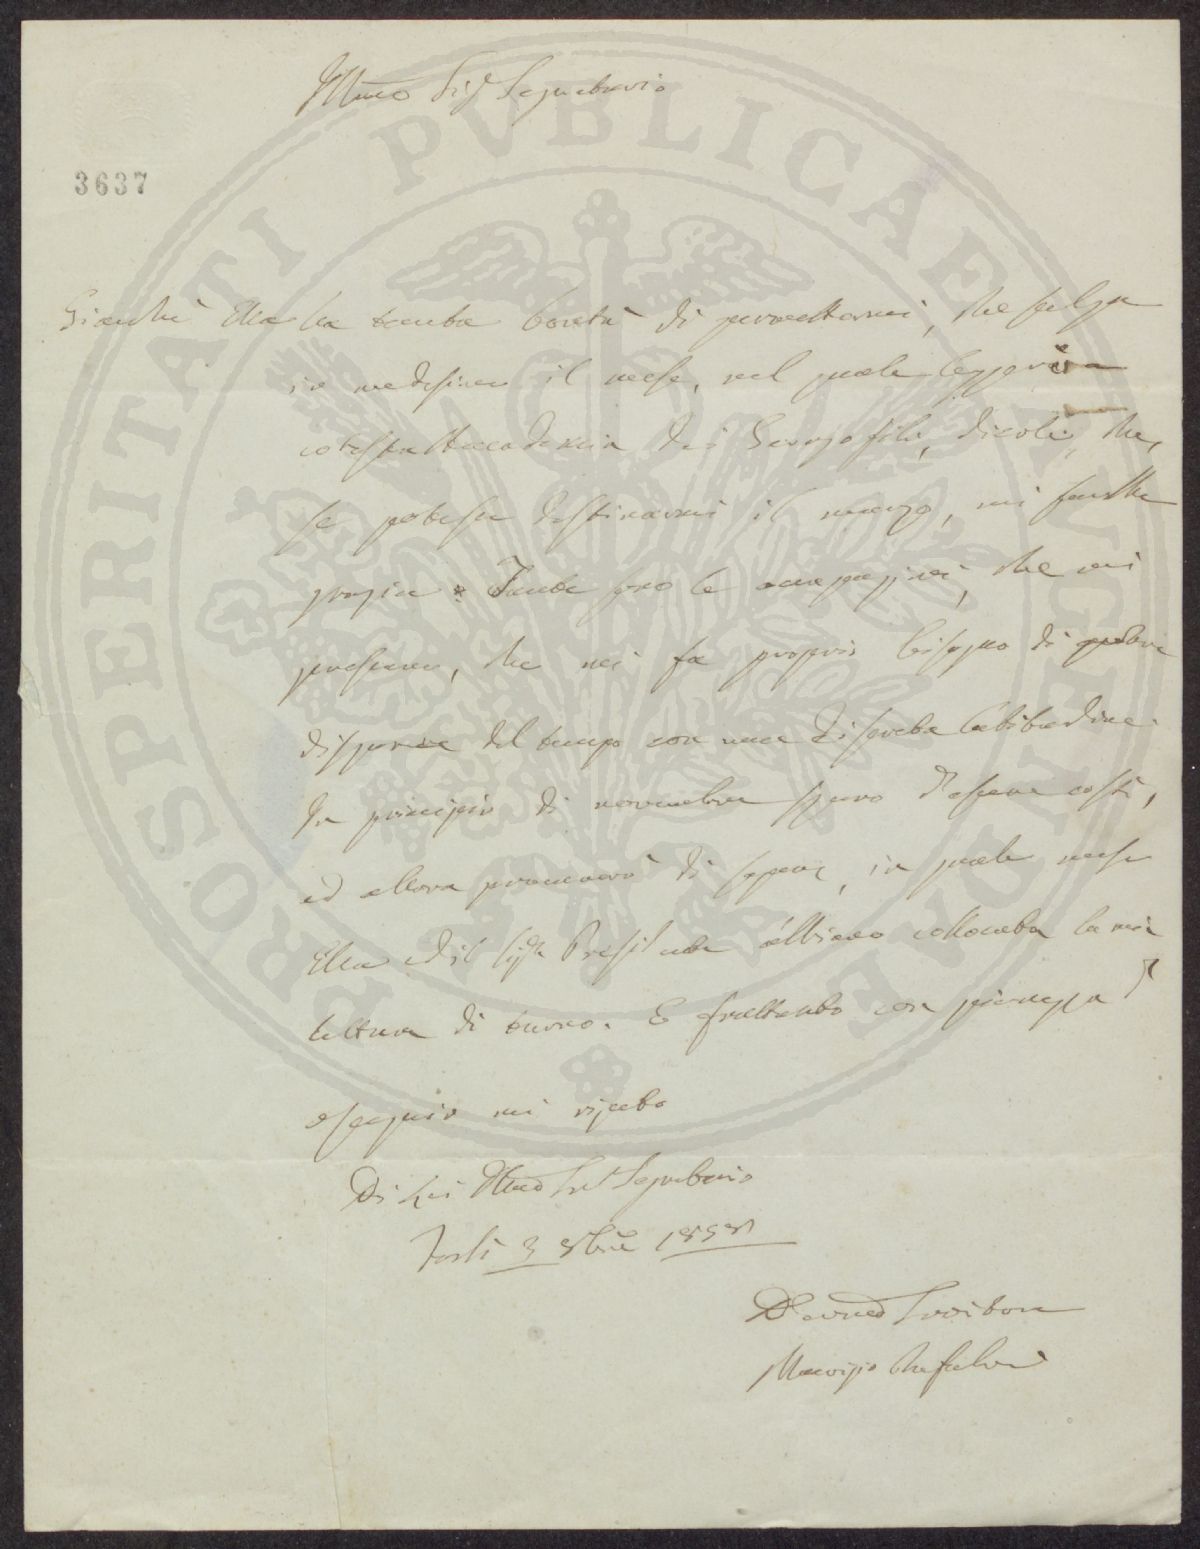 Illmo Sigr Segretario
3637
Giacchè Ella ha tanta bontà di permettermi, che scelga
io medesimo il mese, nel quale leggere a
cotesta Accademia dei Georgofili, dicole, che,
se potesse destinarmi il marzo, mi farebbe
grazia. Tante sono le occupazioni, che mi
pressano, che mi fa proprio bisogno di
disporre del tempo con una discreta latitudine.
In principio di novembre spero d'essere costì,
ed allora procurerò di sapere, in quale mese
Ella ed il Sigr Presidente abbiano collocata la mia
lettura di turno. E frattanto con pienezza d'
ossequio mi ripeto
Di Lei Illmo Sigr Segretario
Forlì 3 8bre
Devmo Servitore
Maurizio Bufalini
PROSPERITATI PVBLICAE AVGENDAE